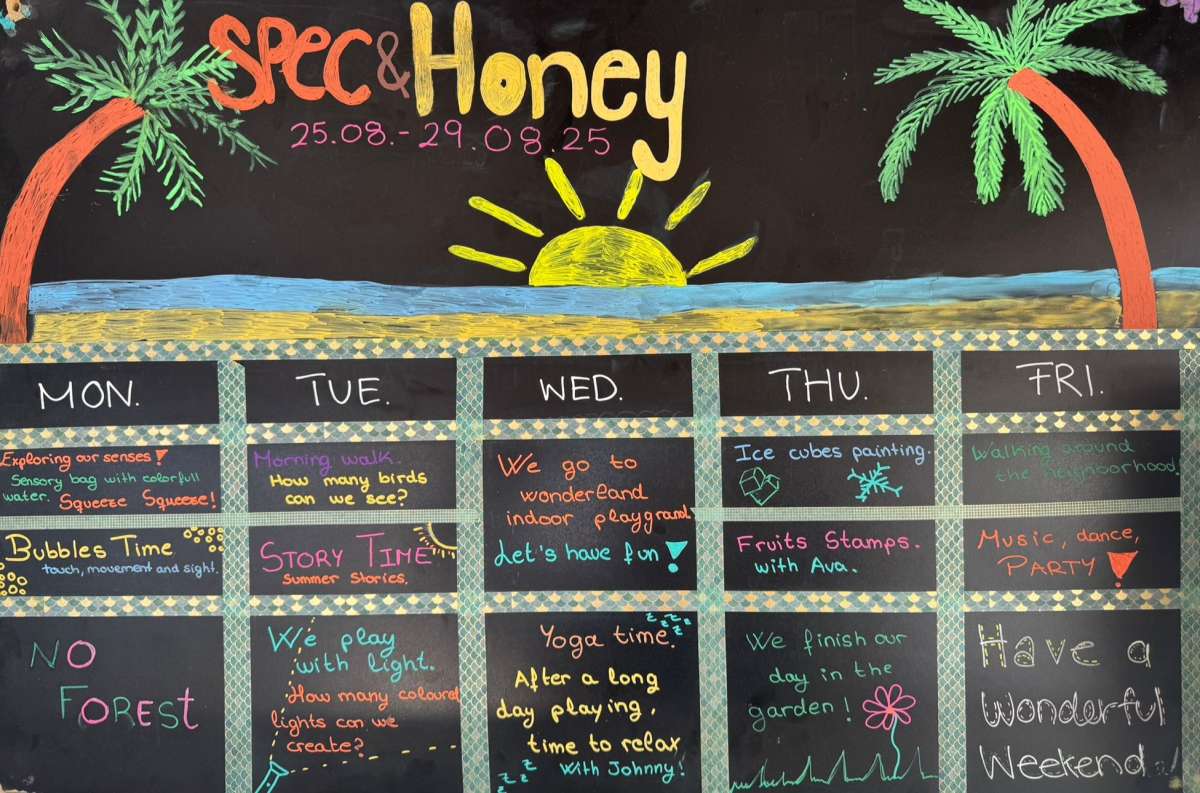 SPEC & Honey
25.08.-29.08.25
MON.
TUE.
WED.
THU.
FRI.
Exploring our senses!
Sensory bag with colorfull
water. Squeeze Squeeze!
Morning walk.
How many birds
can we see?
We go to
wonderland
indoor playgrand
Let's have fun!
Ice cubes painting.
Walking around
the neighoorhood.
Bubbles Time
touch, movement and sight.
STORY TIME
Summer Stories.
Fruits Stamps.
with Ava.
Music, dance,
PARTY!
NO
FOREST
We play
with light.
How many coloured
lights can we
create?
z z z z z
Yoga time.
After a long
day playing,
time to relax
with Johnny!
z z z z
We finish our
day in the
garden!
Have a
Wonderful
Weekend.